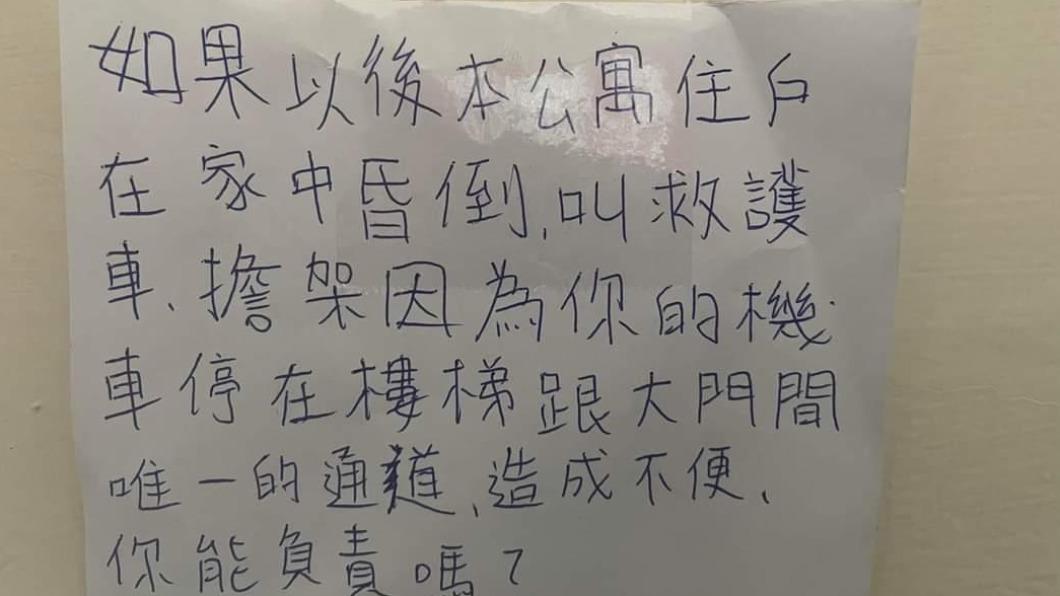 如果以後本公寓住戶
在家中昏倒,叫救護
車、擔架因為你的機
車停在樓梯跟大門間
唯一的通道,造成不便、
你能負責嗎?